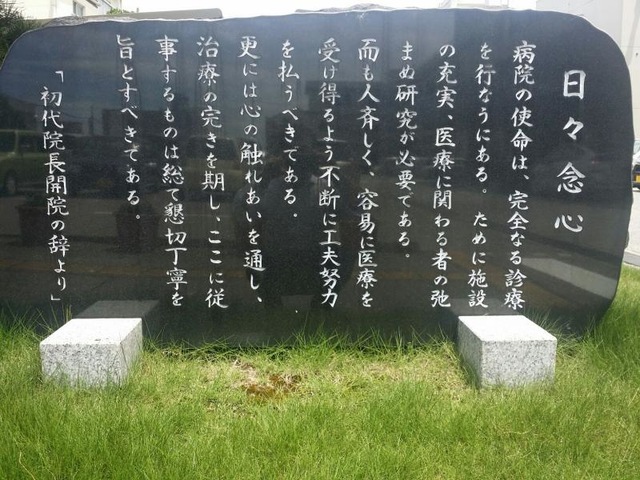 日々念心
病院の使命は、完全なる診療
を行なうにある。ために施設
の充実、医療に関わる者の弛
まぬ研究が必要である。
而も人斉しく、容易に医療を
受け得るよう不断に工夫努力
を払うべきである。
更には心の触れあいを通し、
治療の完きを期し、ここに従
事するものは総て懇切丁寧を
旨とすべきである。
「初代院長開院の辞より」